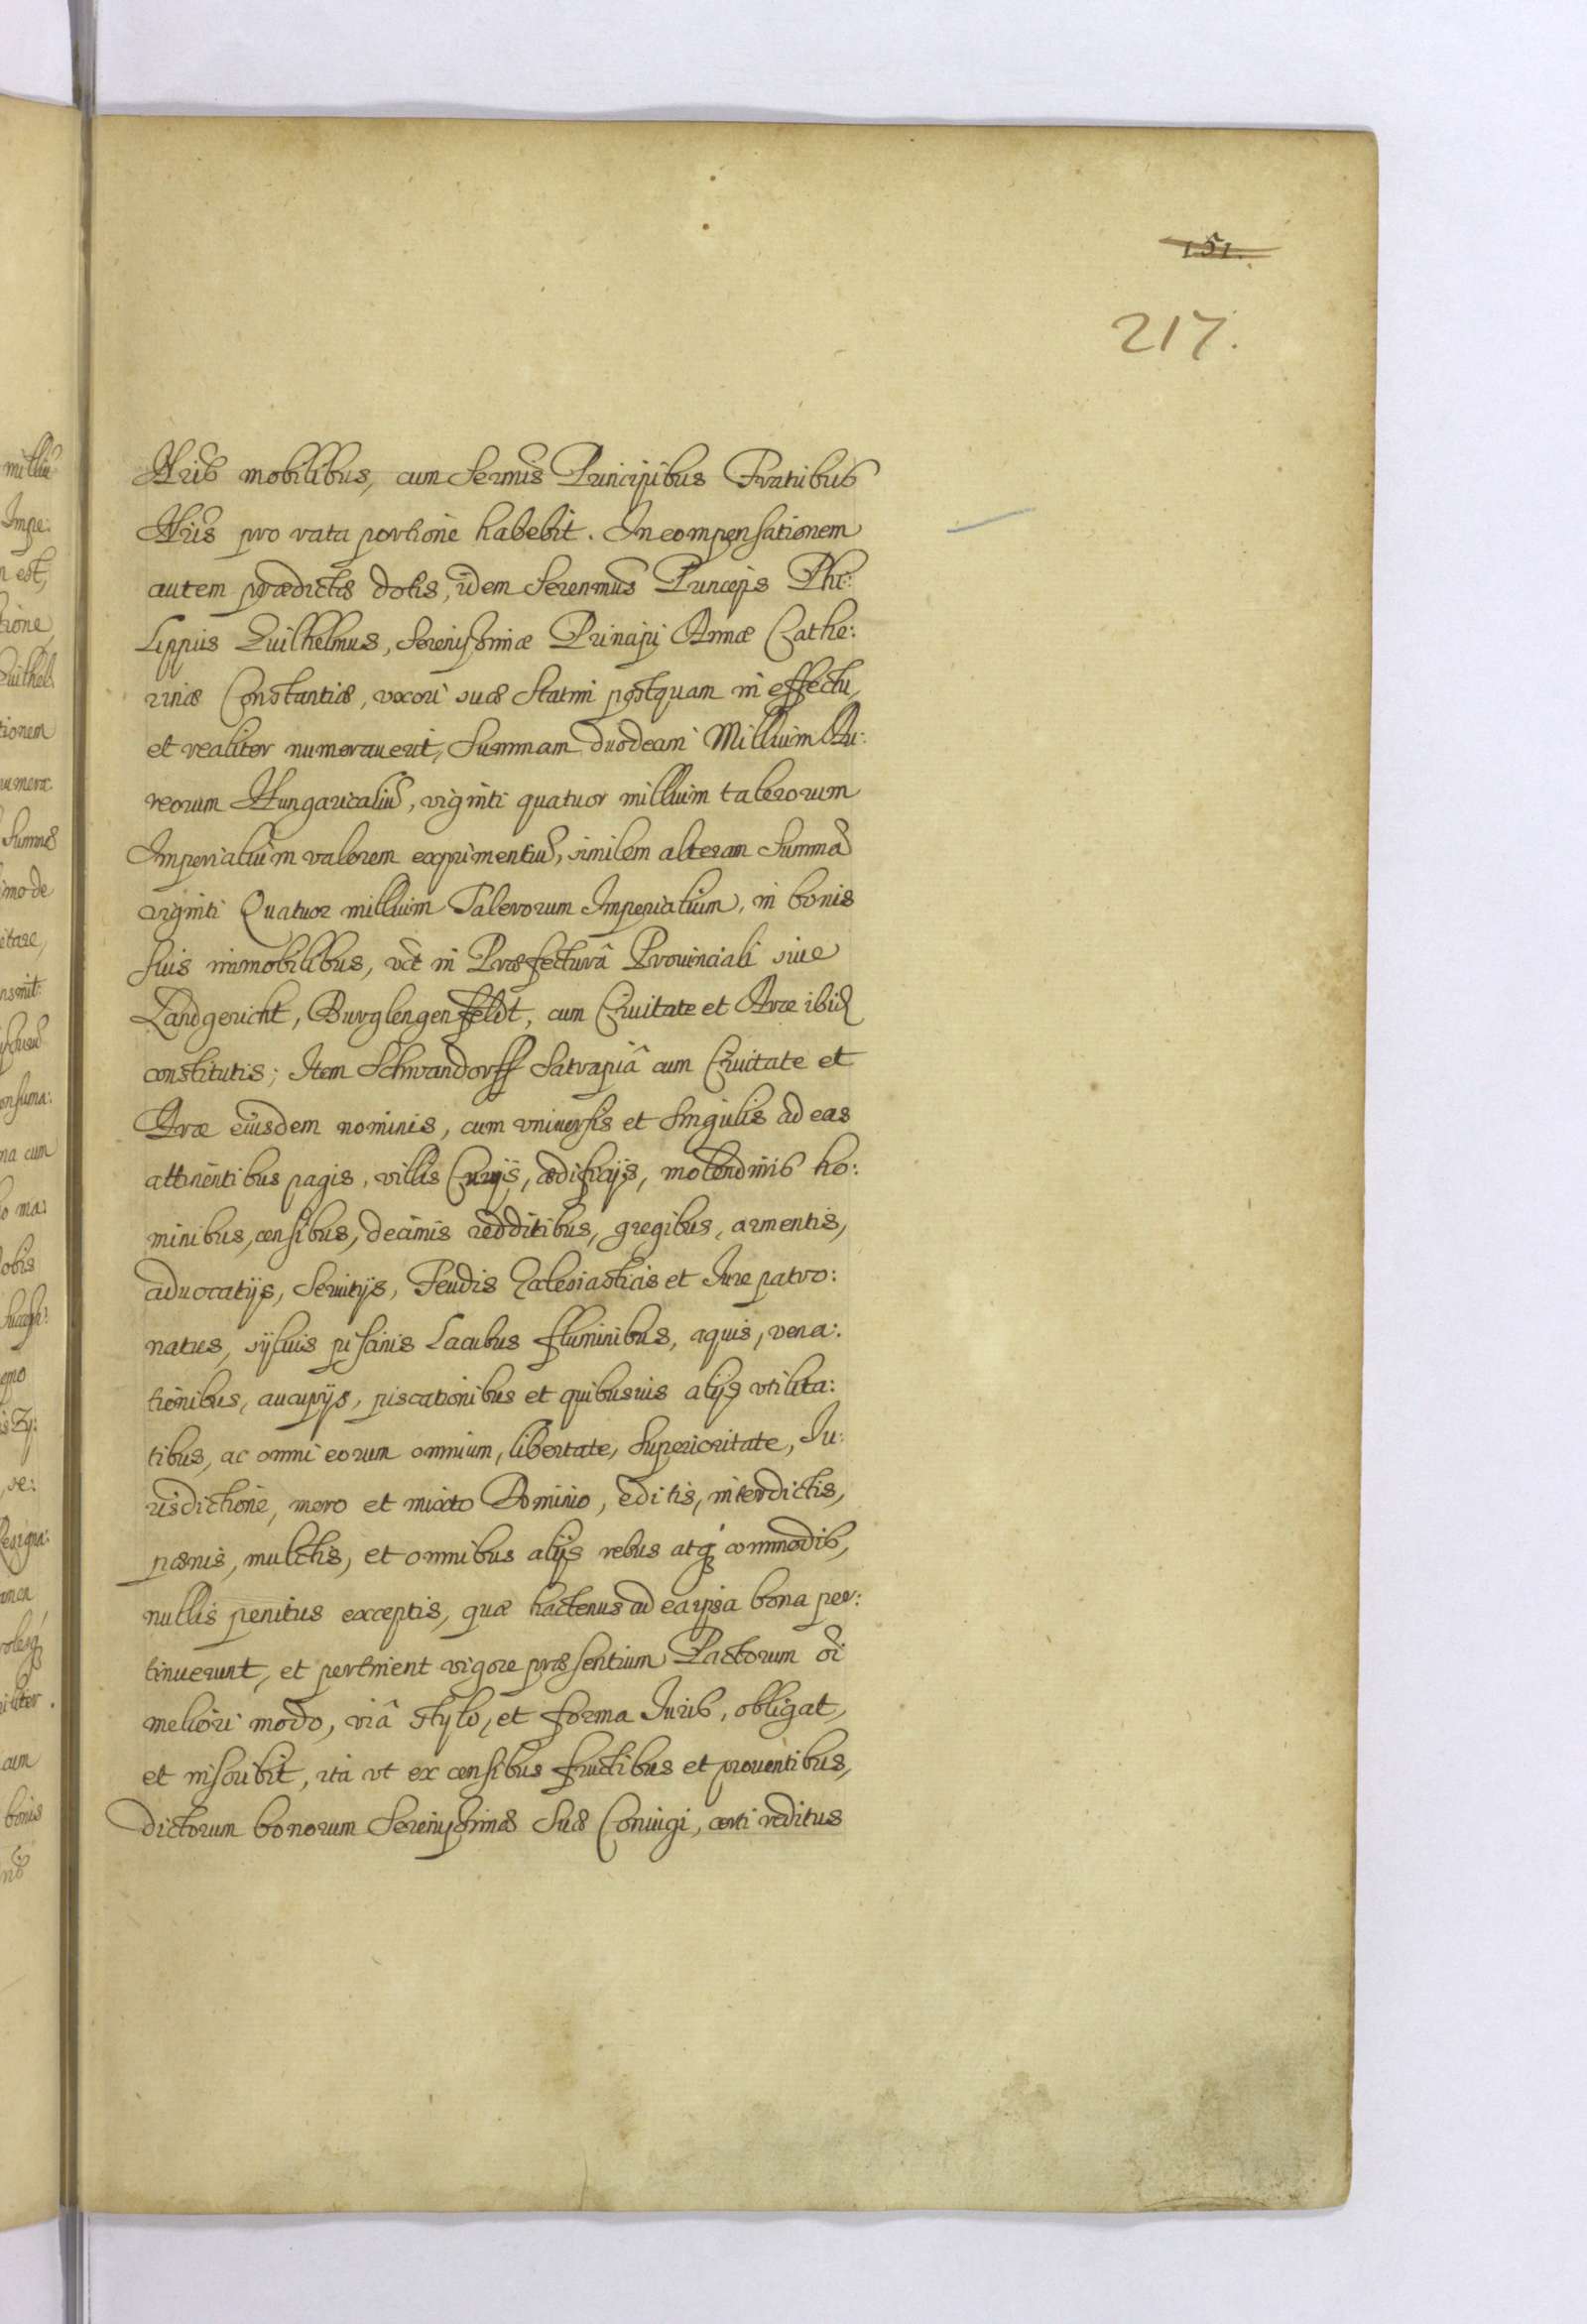 151.
217.
Nris mobilibus, cum Sermis Principibus Fratribus
Nris pro rata portione habebit. In compensationem
autem prædictæ dotis, idem Serenmus Princeps Phi:
lippus Guilhelmus, Serenissimæ Principi Annæ Cathe:
rinæ Constantiæ, uxori suæ statim postquam in effectu,
et realiter numerauerit, Summam duodecim Millium Au:
reorum Hungaricaliū, viginti quatuor millium talerorum
Imperialium valorem exprimentiū, similem alteram Summā
viginti Quatuor millium Talerorum Imperialium, in bonis
suis immobilibus, vct in Præfecturâ Prouinciali siue
Landgericht, Burglengenfeldt, cum Ciuitate et Arce ibid
constitutis; Item Schwandorff Satrapiâ cum Ciuitate et
Arce eiusdem nominis, cum vniuersis et singulis ad eas
attinentibus pagis, villis Curijs, ædificijs, molendinis ho:
minibus, censibus, decimis redditibus, gregibus, armentis,
aduocatijs, Seruitijs, Feudis Ecclesiasticis et Iure patro:
natus, syluis piscinis Lacubus fluminibus, aquis, vena:
tionibus, aucupijs, piscationibus et quibusuis alijs vtilita:
tibus, ac omni eorum omnium, libertate, Superioritate, Iu:
risdictione, mero et mixto Dominio, editis, interdictis,
pænis, mulctis, et omnibus alijs rebus atq; commodis,
nullis penitus exceptis, quæ hactenus ad ea ipsa bona per:
tinuerunt, et pertinent vigore præsentium Pactorum oī
meliori modo, viâ stylo, et forma Iuris, obligat,
et inscribit, ita vt ex censibus fructibus et prouentibus,
dictorum bonorum Serenissimæ Suæ Coniugi, certi reditus